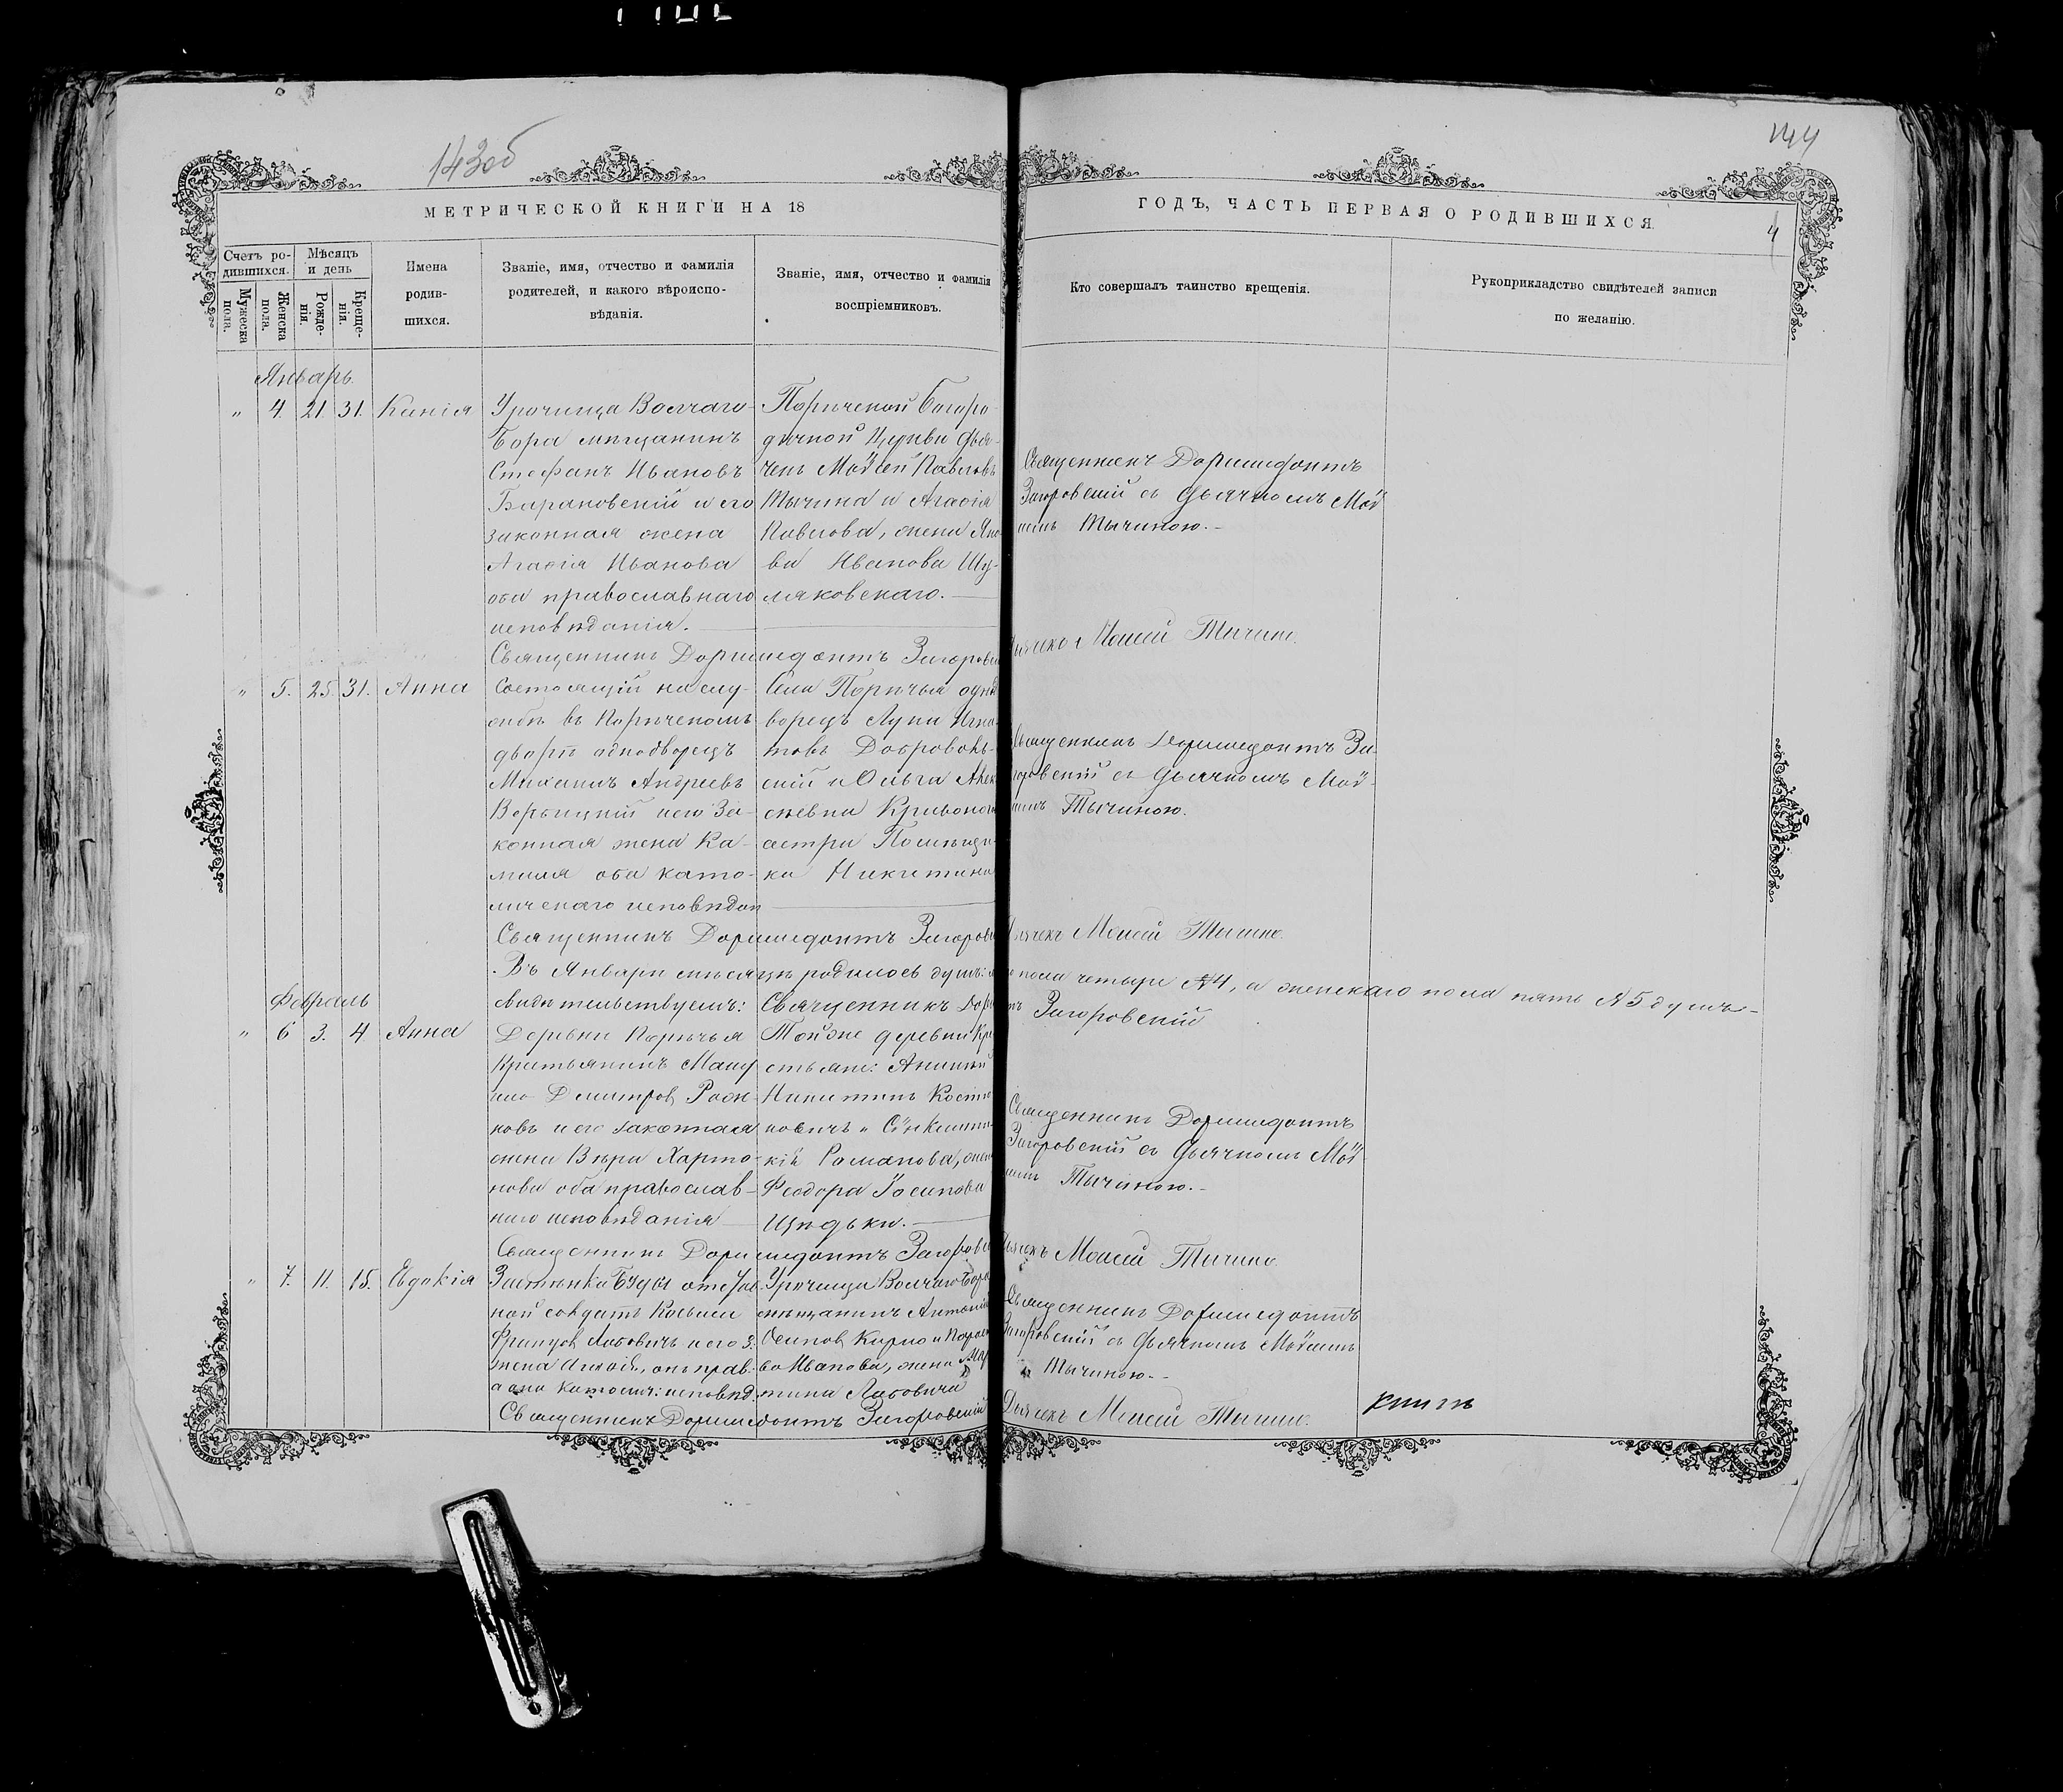 143об
144
МЕТРИЧЕСКОЙ КНИГИ НА 18
ГОДЪ, ЧАСТЬ ПЕРВАЯ О РОДИВШИХСЯ.
4
Счетъ ро-
дившихся.
Мѣсяцъ
и день
Мужеска
пола.
Женска
пола.
Рожде-
нія.
Креще-
нія.
Имена
родив-
шихся.
Званіе, имя, отчество и фамилія
родителей, и какого вѣроиспо-
вѣданія.
Званіе, имя, отчество и фамилія
воспріемниковъ.
Кто совершалъ таинство крещенія.
Рукоприкладство свидѣтелей записи
по желанію.
Январь
" 4. 21. 31.
Урочища Волчаго
Бора мѣщанинъ
Стефанъ Ивановъ
Барановскій и его
законная жена
Агафія Иванова
оба православнаго
исповѣданія.
Порѣчской Богоро-
дичной Церкви дья-
чекъ Мойсей Павловъ
Тычина и Агафія
Павлова, жена Яко-
ва Иванова Шу-
ляковскаго.
Священникъ Доримедонтъ
Загоровскій съ дьячкомъ Мой
Тычиною.
Священникъ Доримедонтъ Загоровскій
Дьячекъ Моисей Тычино.
" 5. 25. 31. Анна
Состоящій на слу-
жбѣ въ Порѣчскомъ
дворѣ однодворецъ
Михаилъ Андреевъ
и его За-
конная жена Ка-
милія оба като-
лическаго исповѣдан
Села Порѣчья одно
ворецъ Лука Игна
товъ Доброволь-
скій и Ольга Алек
сѣевна
сестра Помѣщи-
ка Никитина
Священникъ Доримедонтъ За-
горовскій съ дьячкомъ Мой-
Тычиною.
Священникъ Доримедонтъ Загоровс
Дьячекъ Моисей Тычино.
Въ Январѣ мѣсяцѣ родилось душъ: пола четыре №4, а женскаго пола пять №5 душъ-
Свидѣтельствуемъ: Священникъ Загоровскій
Февраль
" 6 3. 4. Анна
Деревни Порѣчья
Крестьянинъ
Димитров
ковъ и его законная
жена Вѣра Харто-
нова оба православ-
наго исповѣданія
Той же деревни Кре
стьяне:
Никитинъ
новичъ и
Романова, жена
Феодора Іосипова
Священникъ Доримедонтъ
Загоровскій съ дьячкомъ Мой
Тычиною.
Священникъ Доримедонтъ Загоровс
Дьячекъ Моисей Тычино.
" 7. 11. 15. Евдокія
Застѣнка Буды
ной солдатъ
и его з.
жена он прав.
а она католич: исповѣд:
Урочища Волчаго Бора
мѣщанинъ Антоній
Осипов
Иванова, жена Мар
тина
Священникъ Доримедонтъ
Загоровскій съ дьячкомъ
Тычиною.
Священникъ Доримедонтъ Загоровскій
Дьячекъ Моисей Тычино.